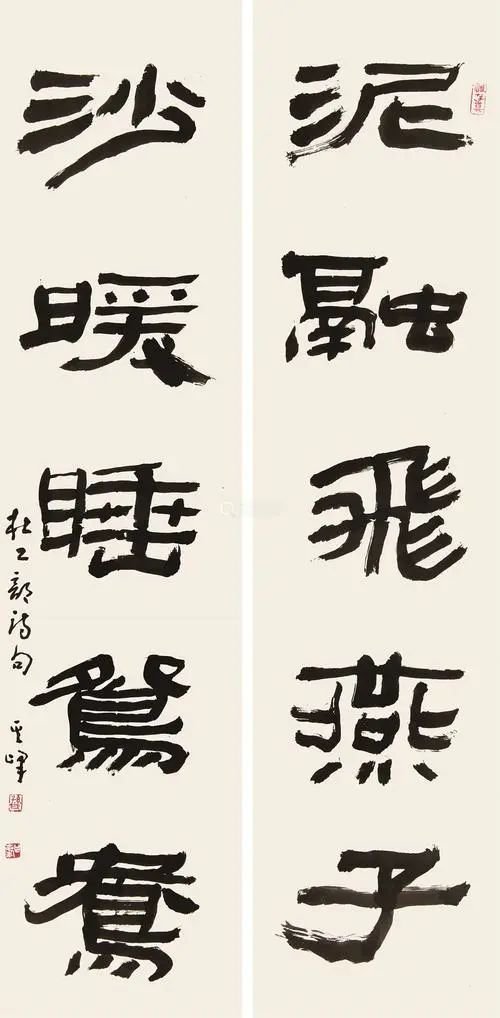 泥融飛燕子
沙暖睡鴛鴦
杜工部詩句